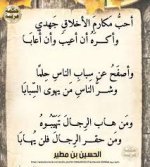 أحبُّ مكارمَ الأخلاقِ جهدي
وأكرَهُ أن أعيبَ وأن أُعابَا
وأصفَحُ عن سبابِ الناسِ حِلمًا
وشرُّ الناسِ مَن يهوى السِّبابَا
ومَن هابَ الرجالَ تهيَّبوهُ
ومَن حقَرَ الرجالَ فلن يُهابَا
الحسين بن مطير